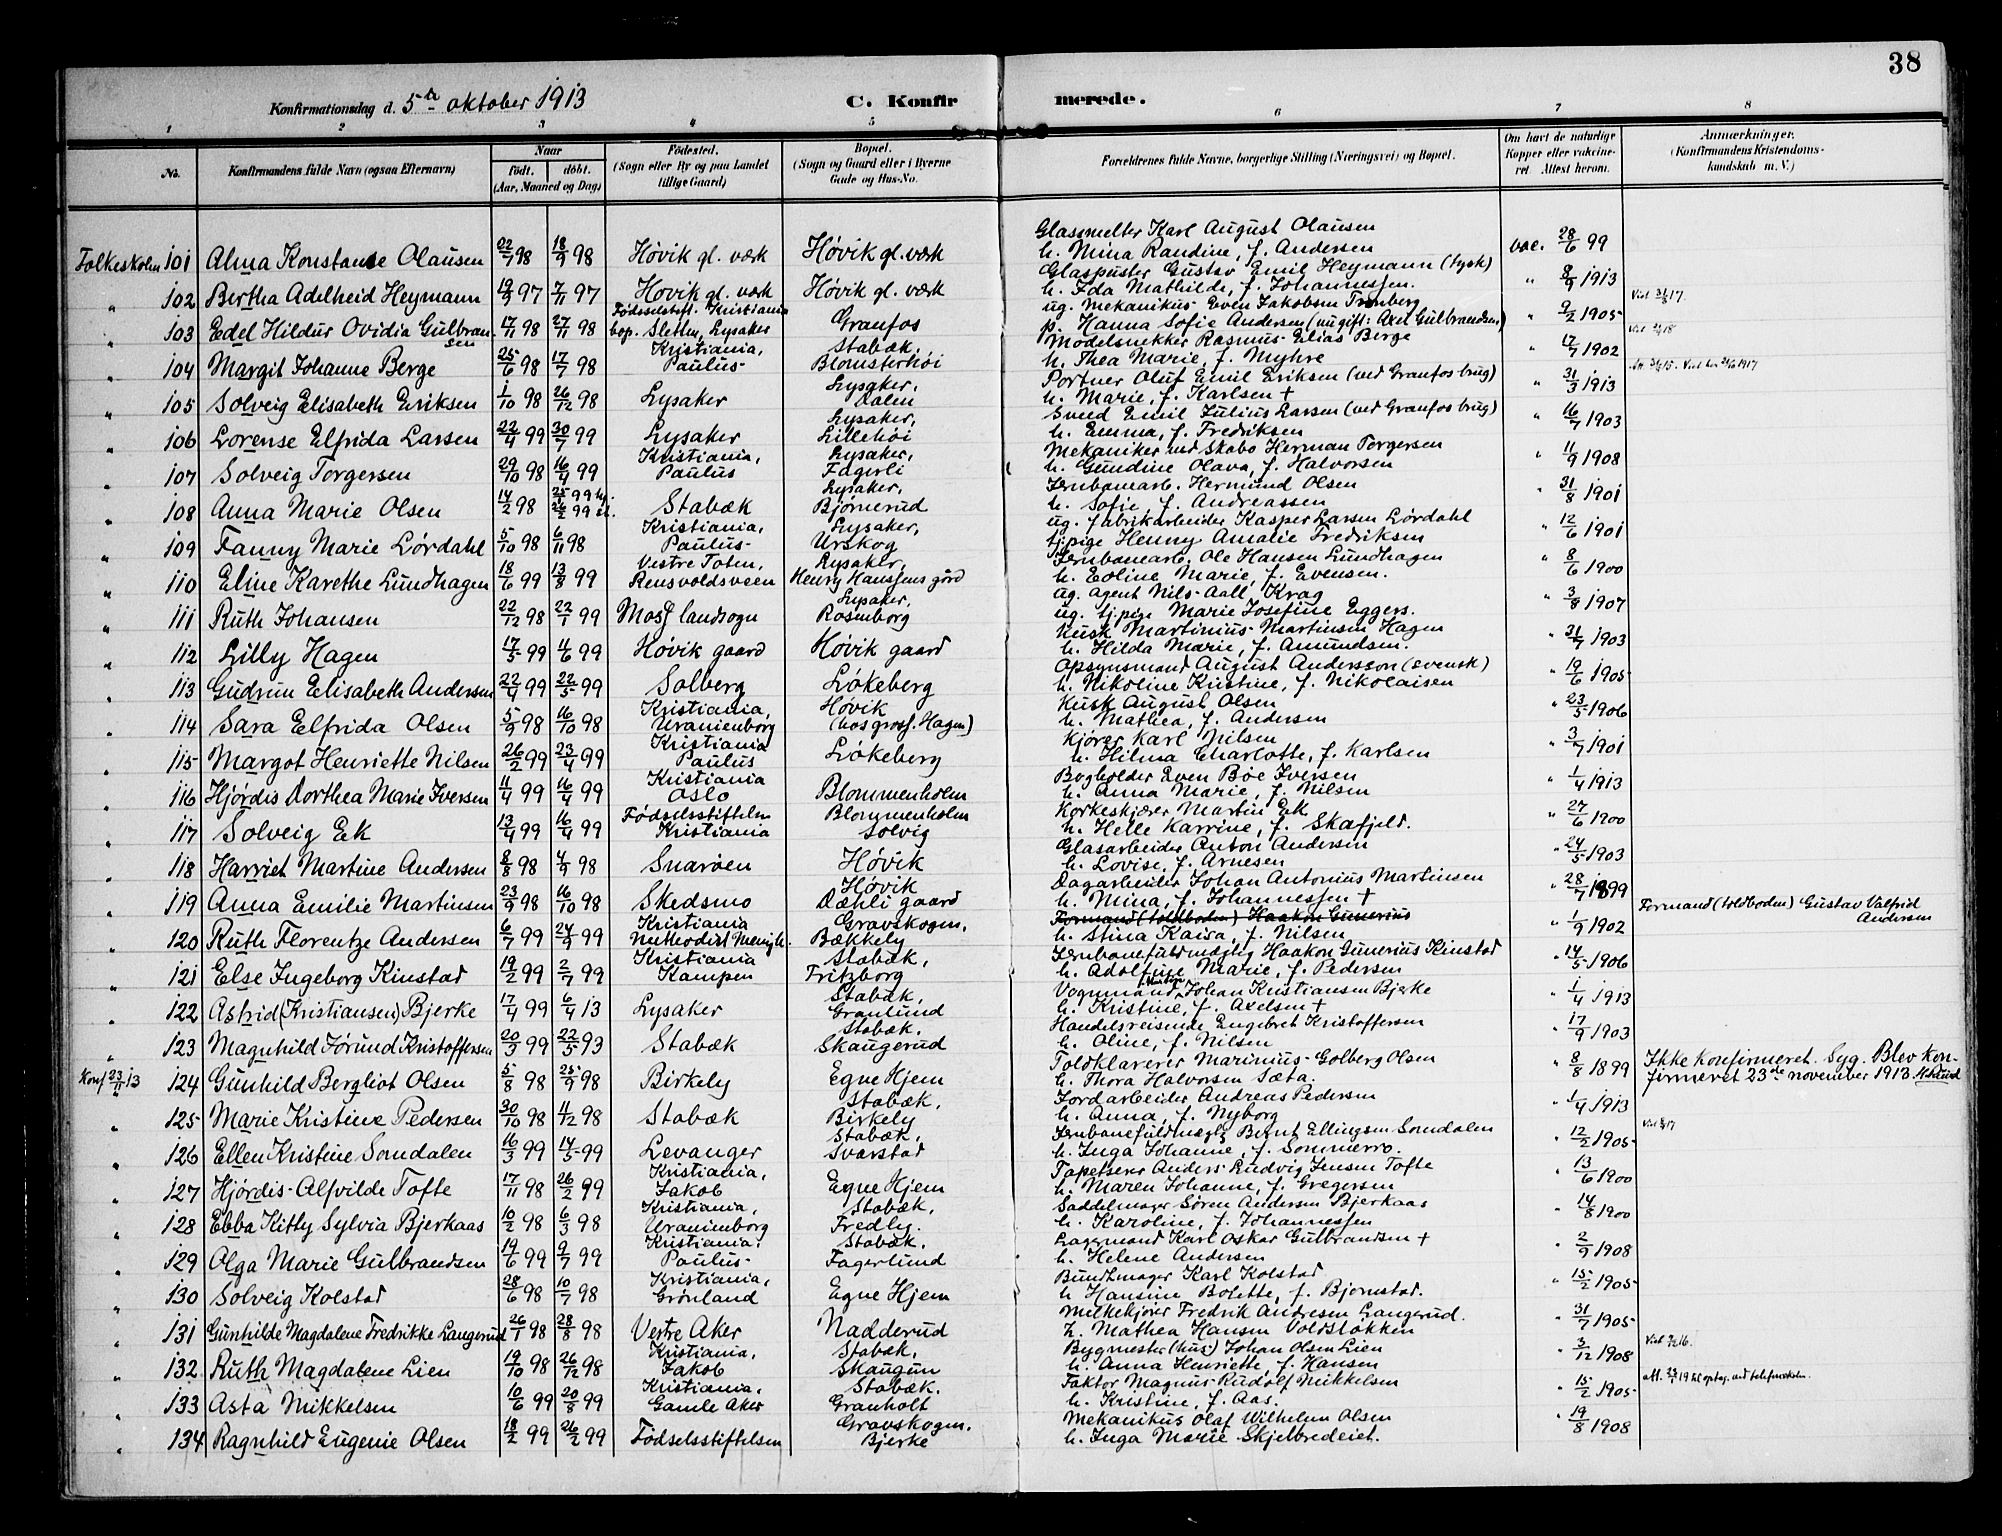 38
Konfirmationsdag d. 5te oktober 1913
C. Konfirmerede.
1 2 3 4 5 6 7 8
No. Konfirmandens fulde Navn (ogsaa Efternavn) Naar født. døbt. (Aar, Maaned og Dag) Fødested. (Sogn eller By og paa Landet tillige Gaard) Bopæl. (Sogn og Gaard eller i Byerne Gade og Hus-No. Forældrenes fulde Navne, borgerlige Stilling (Næringsvei) og Bopæl. Om havt de naturlige Kopper eller vaccineret Attest herom. Anmærkninger. (Konfirmandens Kristendomskundskab m. V.)
Folkeskolen 101 Alma Konstanse Olausen 02/7 98 18/9 98 Høvik gl. værk Høvik gl. værk Glassmelter Karl August Olausen h. Mina Randine, f. Andersen vac. 28/6 99
" 102 Bertha Adelheid Heymann 19/9 97 7/11 97 Høvik gl. værk Høvik gl. værk Glaspuster Gustav Emil Heymann (tysk) h. Ida Mathilde, f. Johannessen. " 8/9 1913
" 103 Edel Hildur Ovidia Gulbransen 17/11 98 27/11 98 Fødselsstift. Kristiania bop. Sletten, Lysaker Granfos ug. Mekanikus Even Jakobsen Tronberg p. Hanna Sofie Andersen (nu gift: Axel Gulbrandsen) " 9/2 1905
" 104 Margit Johanne Berge 25/6 98 17/7 98 Kristiania, Paulus Stabæk, Blomsterhøi Modelsnekker Rasmus Elias Berge h. Thea Marie, f. Myhre " 17/7 1902
" 105 Solveig Elisabeth Eriksen 1/10 98 26/12 98 Lysaker Lysaker, Dalen Portner Oluf Emil Eriksen (ved Granfos brug) h. Marie, f. Karlsen + " 31/3 1913
" 106 Lorense Elfrida Larsen 22/4 99 30/7 99 Lysaker Lysaker, Lillehøi Smed Emil Julius Larsen (ved Granfos brug) h. Emma, f. Fredriksen " 16/7 1903
" 107 Solveig Torgersen 29/10 98 16/4 99 Kristiania, Paulus Lysaker, Fagerli Mekaniker ved Skabo Herman Torgersen h. Gundine Olava, f. Halvorsen " 11/9 1908
" 108 Anna Marie Olsen 14/2 98 Stabæk Lysaker, Bjørnerud Jernbanearb. Hermund Olsen h. Sofie, f. Andreassen " 31/8 1901
" 109 Fanny Marie Lørdahl 5/10 98 6/11 98 Kristiania, Paulus Lysaker, Urskog ug. fabrikarbeider Kasper Larsen Lørdahl tj.pige Henny Amalie Fredriksen " 12/6 1901
" 110 Eline Karethe Lundhagen 18/6 99 13/8 99 Vestre Toten, Rensvoldsveen Lysaker, Henry Hansens gård Jernbanearb. Ole Hansen Lundhagen h. Eoline Marie, f. Evensen. " 8/6 1900
" 111 Ruth Johansen 22/12 98 22/1 99 Moss landsogn Lysaker, Rosenborg ug. Agent Nils Aall Krag ug. tj.pige Marie Josefine Eggers. " 3/8 1907
" 112 Lilly Hagen 17/5 99 4/6 99 Høvik gaard Høvik gaard Kusk Martinius Martinsen Hagen h. Hilda Marie, f. Amundsen. " 31/7 1903
" 113 Gudrun Elisabeth Andersen 22/4 99 22/5 99 Solberg Løkeberg Opsynsmand August Andersson (svensk) h. Nikoline Kristine, f. Nikolaisen " 19/6 1905
" 114 Sara Elfrida Olsen 5/9 98 16/10 98 Kristiania, Uranienborg Høvik (hos gross. Hagen) Kusk August Olsen h. Mathea, f. Andersen " 23/5 1906
" 115 Margot Henriette Nilsen 26/2 99 23/4 99 Kristiania Paulus Løkeberg Kjører Karl Nilsen h. Hilma Charlotte, f. Karlsen " 3/7 1901
" 116 Hjørdis Dorthea Marie Iversen 11/4 99 16/4 99 Kristiania Oslo Blommenholm Bogholder Even Bøe Iversen h. Anna Marie, f. Nilsen " 1/4 1913
" 117 Solveig Ek 13/4 99 16/4 99 Fødselsstiftelsen Kristiania Blommenholm Solvig Korkeskjærer Martin Ek h. Helle Karrine, f. Skafjeld. " 27/6 1900
" 118 Harriet Martine Andersen 8/8 98 4/9 98 Snarøen Høvik Glasarbeider Anton Andersen h. Lovise, f. Arnesen " 24/5 1903
" 119 Anna Emilie Martinsen 23/9 98 16/10 98 Skedsmo Høvik Dæhli gaard Dagarbeider Johan Antonius Martinsen h. Mina, f. Johannessen + " 28/7 1899
" 120 Ruth Florentze Andersen 6/7 99 24/9 99 Kristiania Methodist Menigh. Gravskogen, Bækkely Formand (toldboden) Haakon Gunerius h. Stina Kaisa, f. Nilsen " 1/9 1902 Formand (toldboden) Gustav Valfrid Andersen
" 121 Else Ingeborg Kinstad 19/2 99 2/7 99 Kristiania Kampen Stabæk, Fritzborg Jernbanefuldmægtig Haakon Gunerius Kinstad h. Adolfine Marie, f. Pedersen " 14/5 1906
" 122 Astrid (Kristiansen) Bjerke 17/4 99 6/4 13 Lysaker Stabæk, Granlund Vognmand Johan Kristiansen Bjerke h. Kristine, f. Axelsen + " 1/4 1913
" 123 Magnhild Jørund Kristoffersen 20/3 99 22/5 93 Stabæk Stabæk. Skaugerud Handelsreisende Engebret Kristoffersen h. Oline, f. Nilsen " 17/9 1903
Konf 23/11 13 124 Gunhild Bergliot Olsen 5/8 98 25/9 98 Birkely Egne Hjem Toldklarerer Marinius Golberg Olsen h. Thora Halvorsen Sæta. " 8/8 1899 Ikke konfirmeret. Syg. Blev konfirmeret 23de november 1913.
" 125 Marie Kristine Pedersen 30/10 98 4/12 98 Stabæk Stabæk, Birkely Jordarbeider Andreas Pedersen h. Anna, f. Nyborg " 1/4 1913
" 126 Ellen Kristine Somdalen 16/3 99 14/5 99 Levanger Stabæk, Svarstad Jernbanefuldmægtig Bernt Ellingsen Somdalen h. Inga Johanne, f. Sommerro. " 12/2 1905
" 127 Hjørdis Alfvilde Tofte 17/11 98 26/2 99 Kristiania, Jakob Egne Hjem Tapetserer Anders Ludvig Jensen Tofte h. Maren Johanne, f. Gregersen " 13/6 1900
" 128 Ebba Kitty Sylvia Bjerkaas 10/2 98 6/3 98 Kristiania, Uranienborg Stabæk, Fredly. Saddelmager Søren Andersen Bjerkaas h. Karoline, f. Johannessen " 14/8 1900
" 129 Olga Marie Gulbrandsen 19/6 99 9/7 99 Kristiania, Paulus Stabæk. Fagerlund Lagermand Karl Oskar Gulbrandsen + h. Helene Andersen " 2/9 1908
" 130 Solveig Kolstad 28/6 98 10/7 98 Kristiania, Grønland Egne Hjem Bundtmager Karl Kolstad h Hansine Bolette, f. Bjørnstad. " 15/2 1905
" 131 Gunhilde Magdalene Fredrikke Langerud 26/1 98 28/8 98 Vestre Aker Nadderud Melkekjører Fredrik Andresen Langerud. h. Mathea Hansen Voldstokken " 31/7 1905
" 132 Ruth Magdalene Lien 19/10 98 26/12 98 Kristiania, Jakob Stabæk. Skaugun Bygmester (hus) Johan Olsen Lien h. Anna Henriette, f. Hansen " 3/12 1908
" 133 Asta Mikkelsen 10/6 99 20/8 99 Kristiania, Gamle Aker Stabæk. Granholt Faktor Magnus Rudolf Mikkelsen h. Kristine, f. Aas. " 15/2 1905
" 134 Ragnhild Eugenie Olsen 18/2 99 26/2 99 Fødselsstiftelsen Gravskogen. Bjerke Mekanikus Olaf Wilhelm Olsen h. Inga Marie Skjelbredeiet. " 19/8 1908